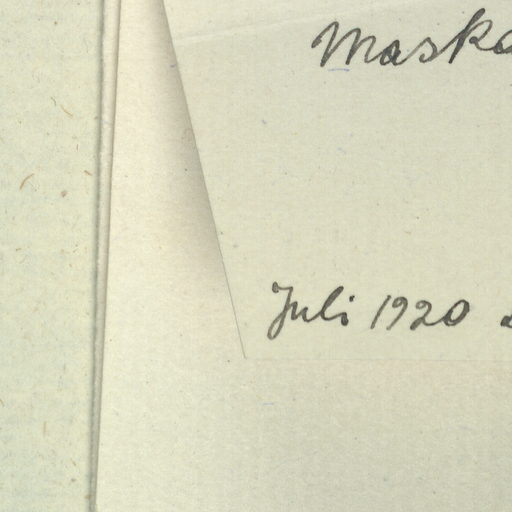 Maska
Juli 1920